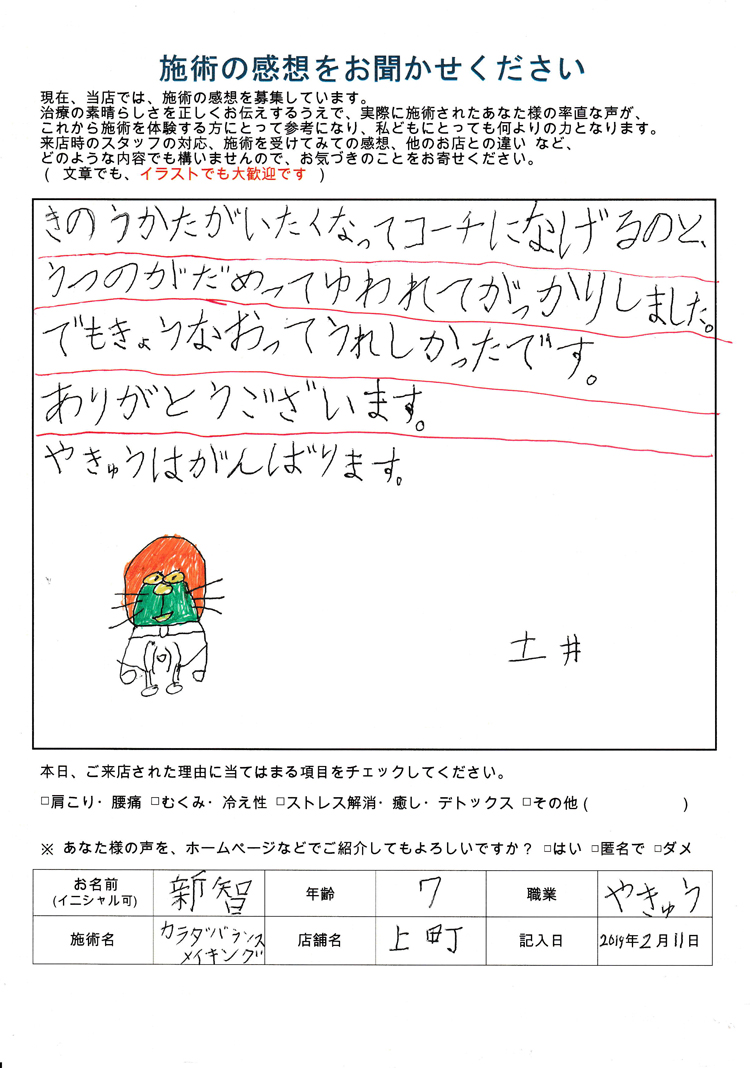 施術の感想をお聞かせください
現在、当店では、施術の感想を募集しています。
治療の素晴らしさを正しくお伝えするうえで、実際に施術されたあなた様の率直な声が、
これから施術を体験する方にとって参考になり、私どもにとっても何よりの力となります。
来店時のスタッフの対応、施術を受けてみての感想、他のお店との違い など、
どのような内容でも構いませんので、お気づきのことをお寄せください。
( 文章でも、イラストでも大歓迎です )
きのうかたがいたくなってコーチになげるのと、
うつのがだめってゆわれてがっかりしました。
でもきょうなおってうれしかったです。
ありがとうございます。
やきゅうはがんばります。
土井
本日、ご来店された理由に当てはまる項目をチェックしてください。
□肩こり・腰痛 □むくみ・冷え性 □ストレス解消・癒し・デトックス □その他 ( )
※ あなた様の声を、ホームページなどでご紹介してもよろしいですか? □はい □匿名で □ダメ
お名前 (イニシャル可) 新智 年齢 7 職業 やきゅう
施術名 カラダバランスメイキング 店舗名 上町 記入日 2019年2月11日